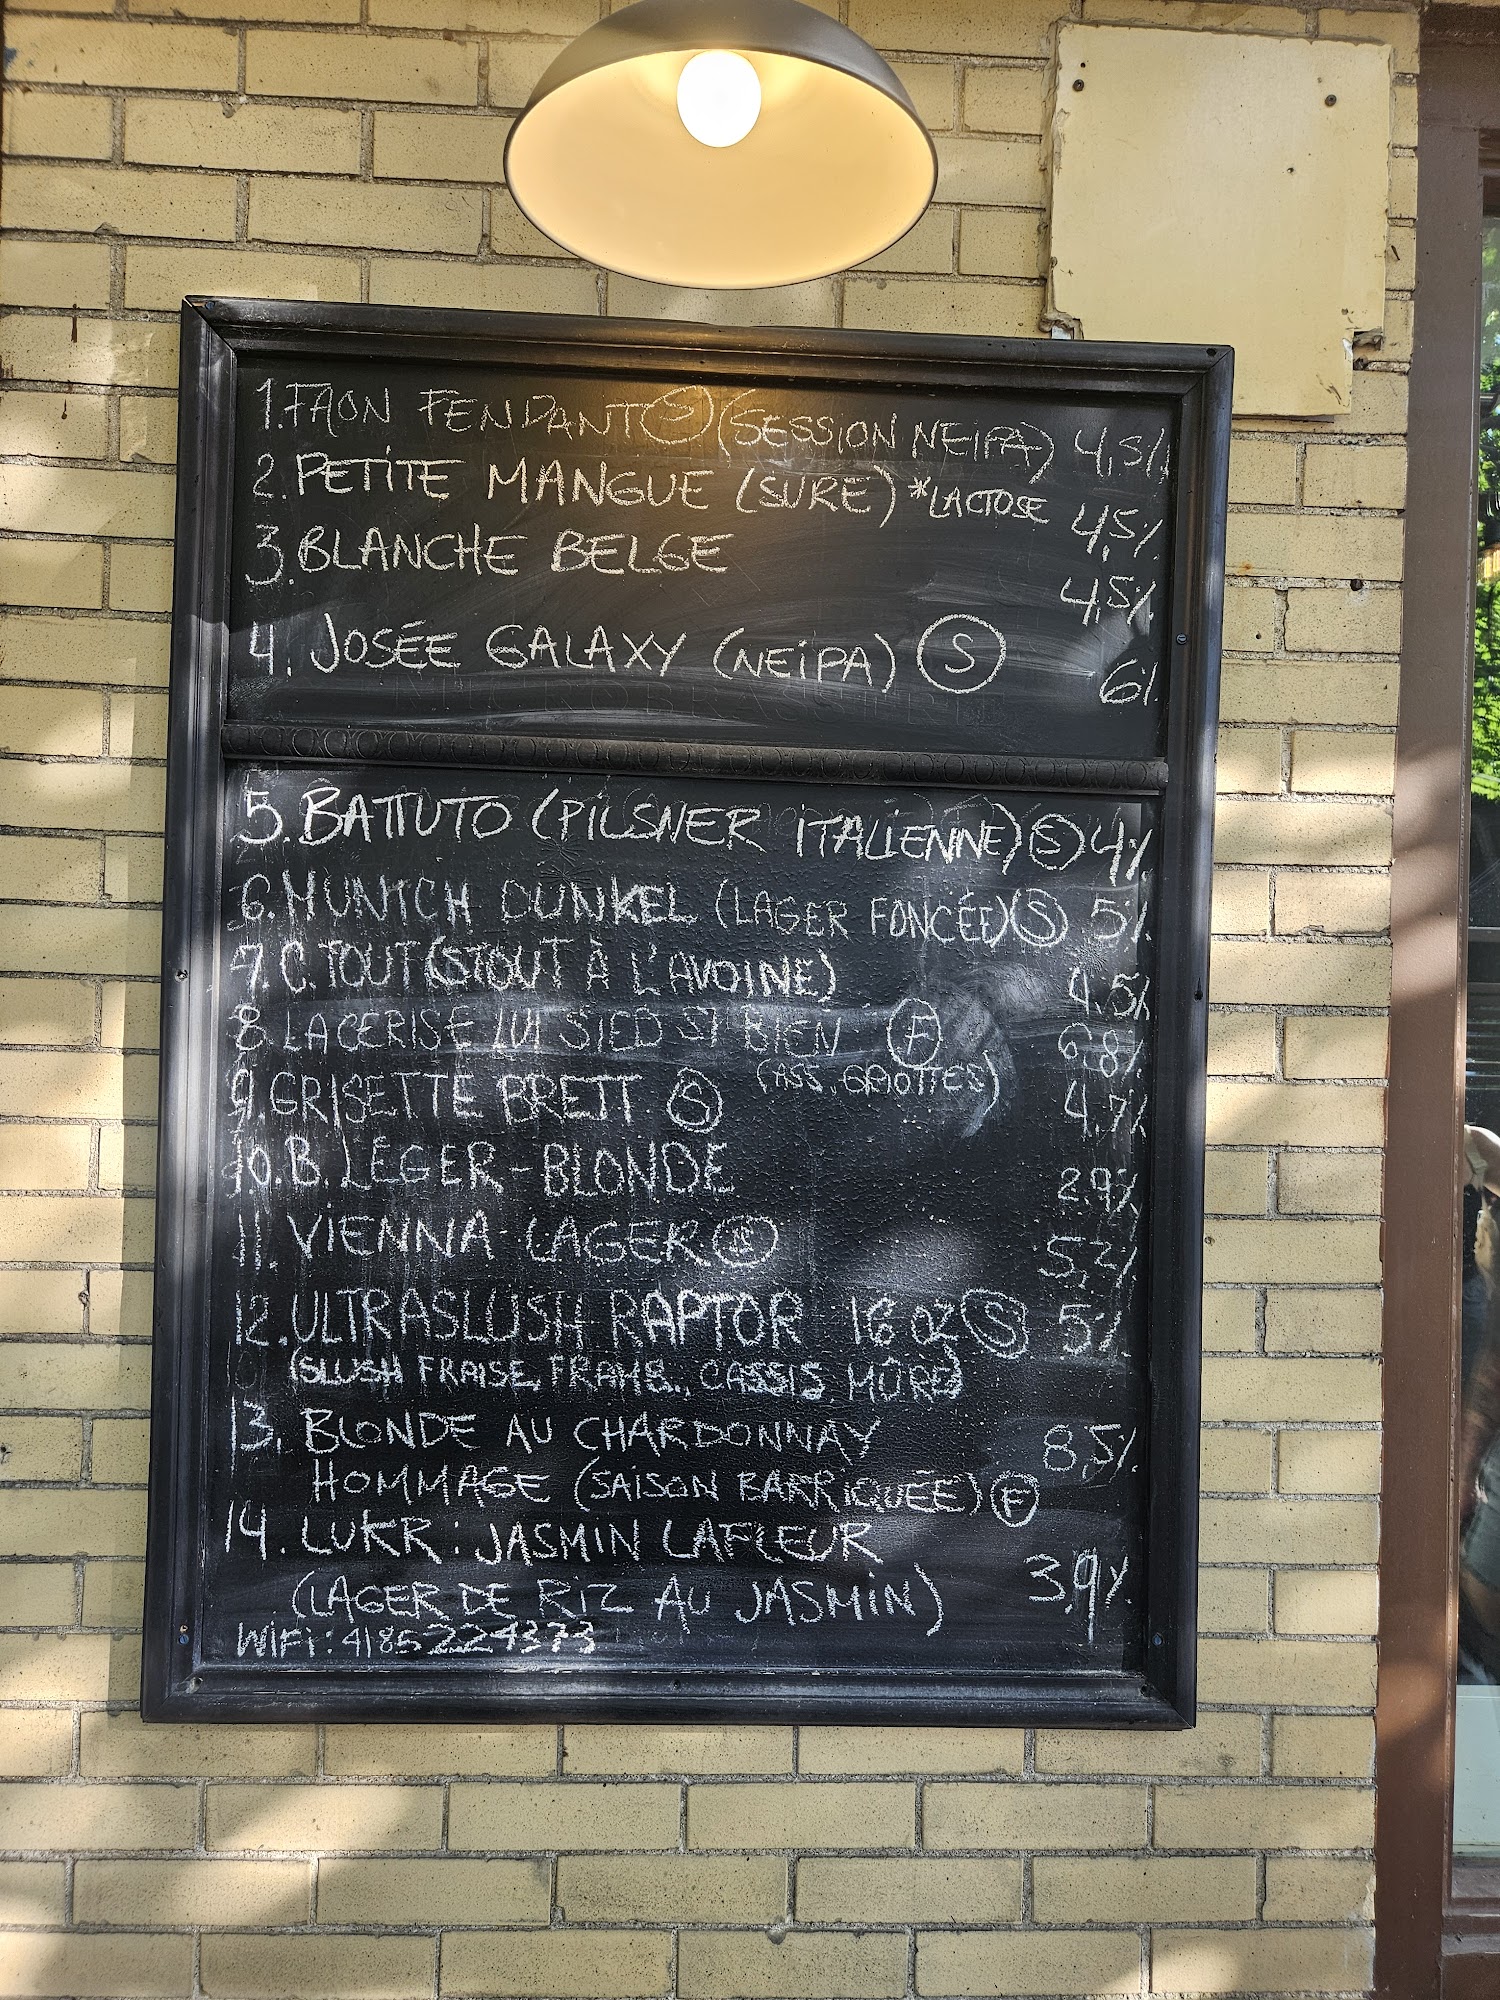 1. FAON FENDANT (S) (SESSION NEIPA) 4,5%
2. PETITE MANGUE (SURE) *LACTOSE 4,5%
3. BLANCHE BELGE 4,5%
4. JOSÉE GALAXY (NEIPA) (S) 6%
5. BATTUTO (PILSNER ITALIENNE) (S) 4%
6. MUNICH DUNKEL (LAGER FONCÉE) (S) 5%
7. C. TOUT (STOUT À L'AVOINE) 4.5%
8. LA CERISE LUI SIED SI BIEN (F) 6,8%
(ASS. GRIOTTES)
9. GRISETTE BRETT (S) 4,7%
10. B. LÉGER - BLONDE 2.9%
11. VIENNA LAGER 5,2%
12. ULTRASLUSH RAPTOR 16 oz (S) 5%
(SLUSH FRAISE, FRAMB., CASSIS, MÛRE)
13. BLONDE AU CHARDONNAY 8,5%
HOMMAGE (SAISON BARRIQUÉE) (F)
14. LUKR : JASMIN LAFLEUR
(LAGER DE RIZ AU JASMIN) 3,9%
WIFI : 4185224373